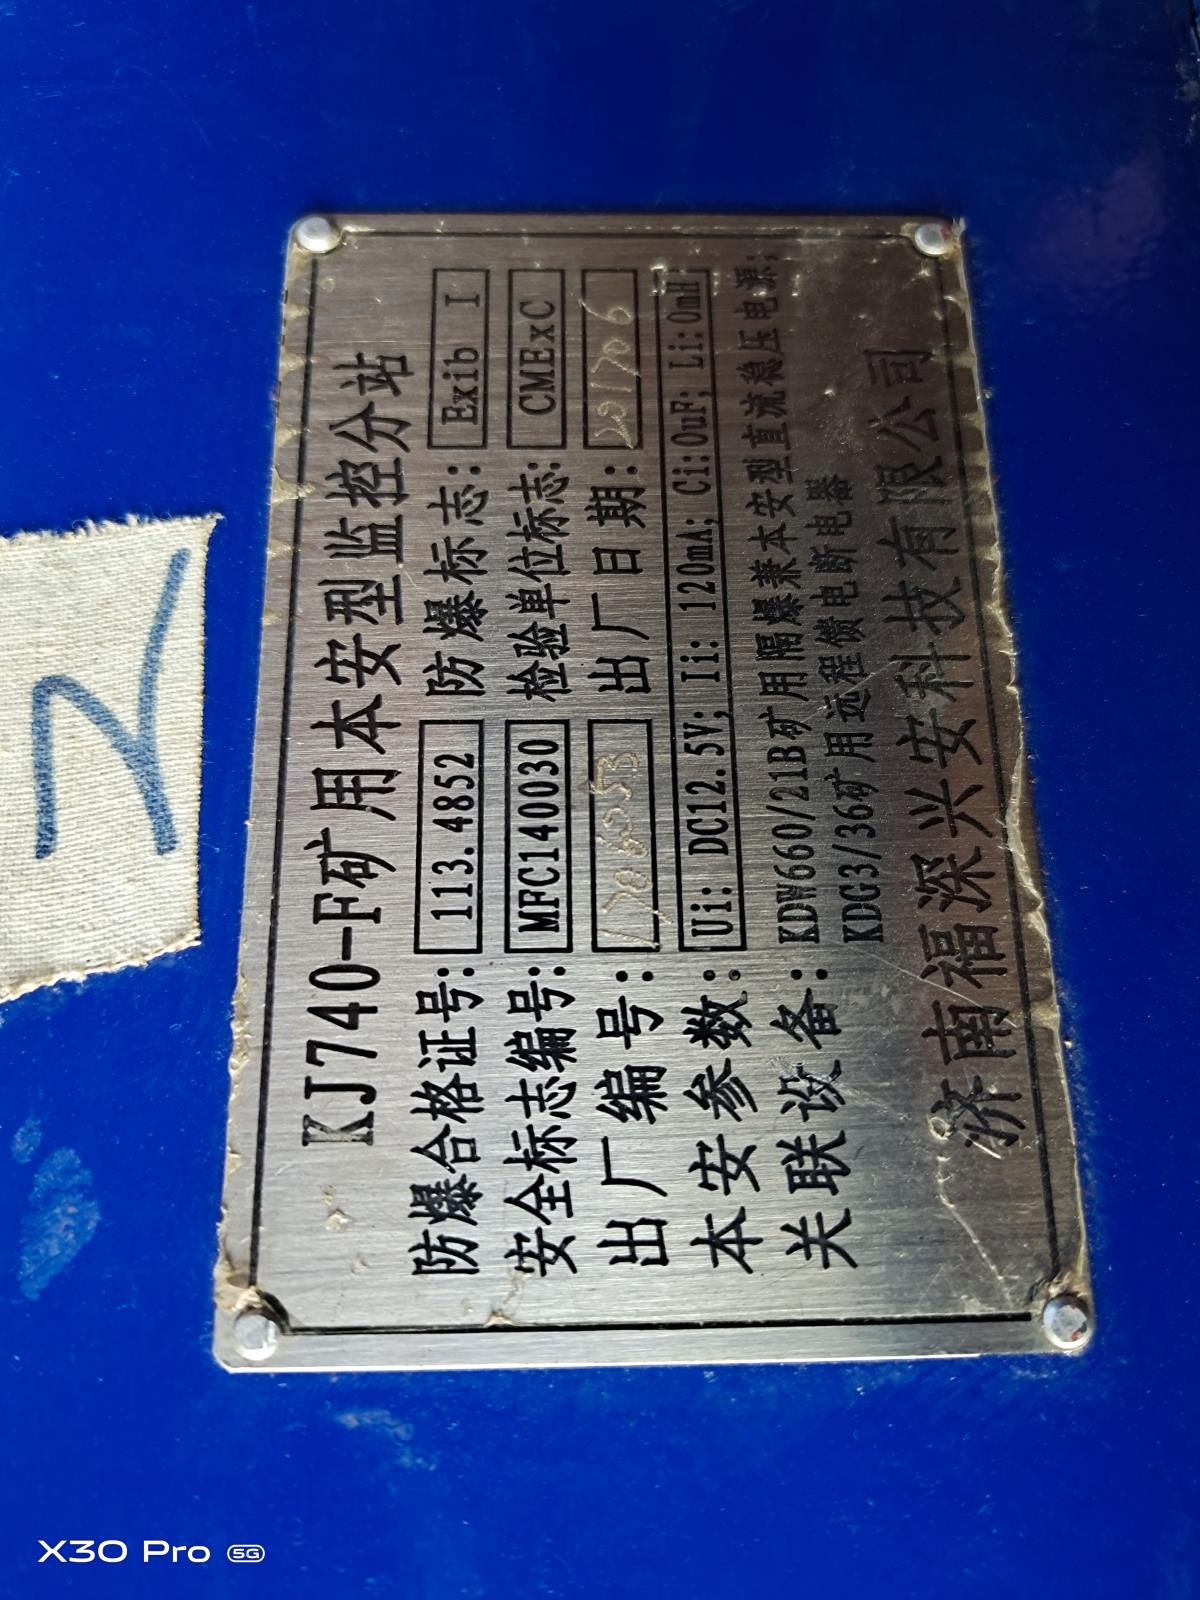 KJ740-F矿用本安型监控分站
防爆合格证号: 113.4852 防爆标志: Exib I
安全标志编号: MFC140030 检验单位标志: CMExC
出厂编号: 出厂日期: 201706
本安参数: Ui: DC12.5V; Ii: 120mA; Ci:0uF; Li:0mH
关联设备: KDW660/21B矿用隔爆兼本安型直流稳压电源;
KDG3/36矿用远程馈电断电器
济南福深兴安科技有限公司
X30 Pro 5G